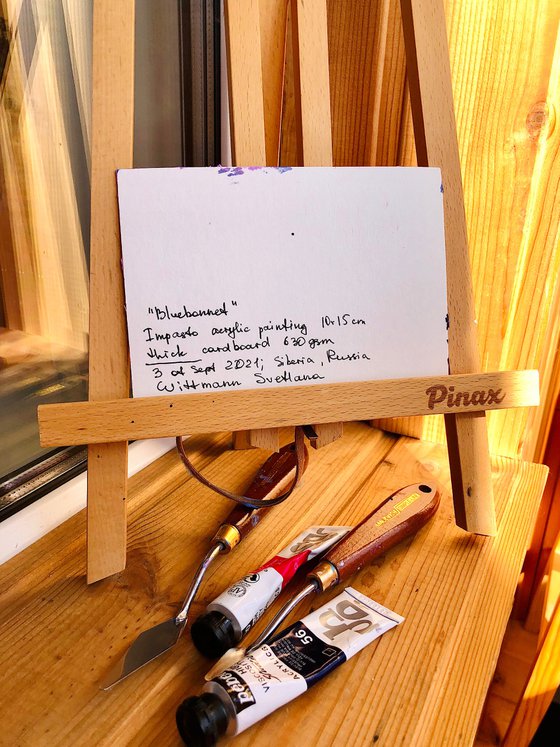 "Bluebonnet"
Impasto acrylic painting 10x15 cm
thick cardboard 630 gsm
3 of Sept 2021; Siberia, Russia
Wittmann Svetlana
Pinax
56
ACRYLICS